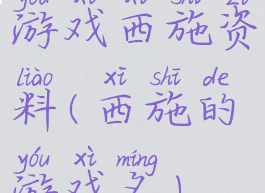 yóu xì xī shī zī
游戏西施资
liào xī shī de
料(西施的
yóu xì míng
游戏名)